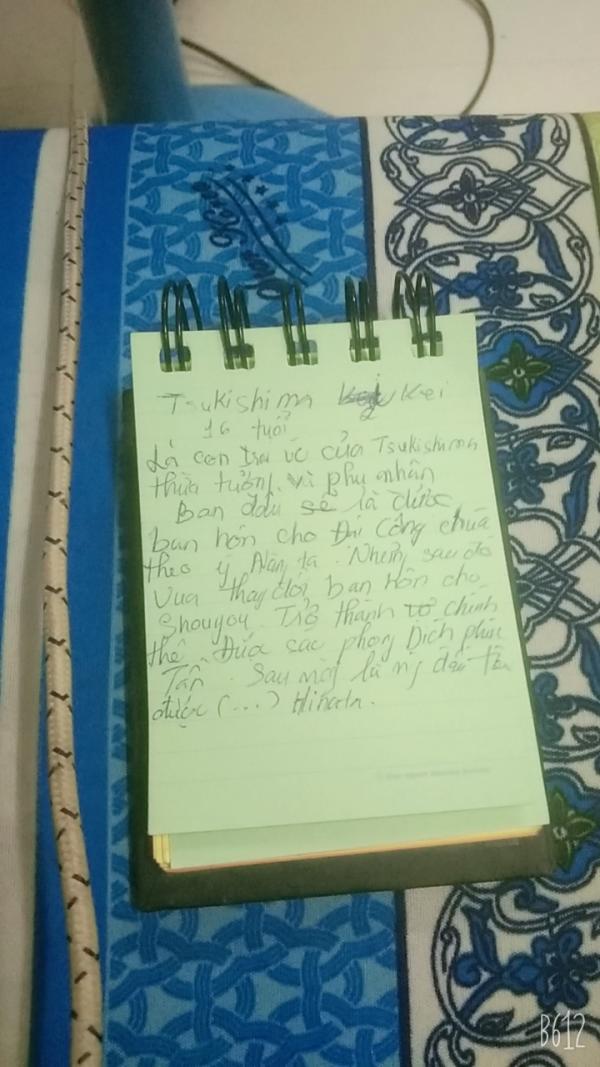 Tsukishima Kei
16 tuổi
Là con trai út của Tsukishima
thừa tướng và phu nhân
Ban đầu sẽ là được
ban hôn cho Đại Công chúa
theo ý Nàng ta. Nhưng sau đó
Vua thay đổi, ban hôn cho
Shouyou. Trở thành chính
thê. Được sắc phong Dịch phúc
Tấn. Sau này là ng đầu tiên
được (...) Hinata.
B612